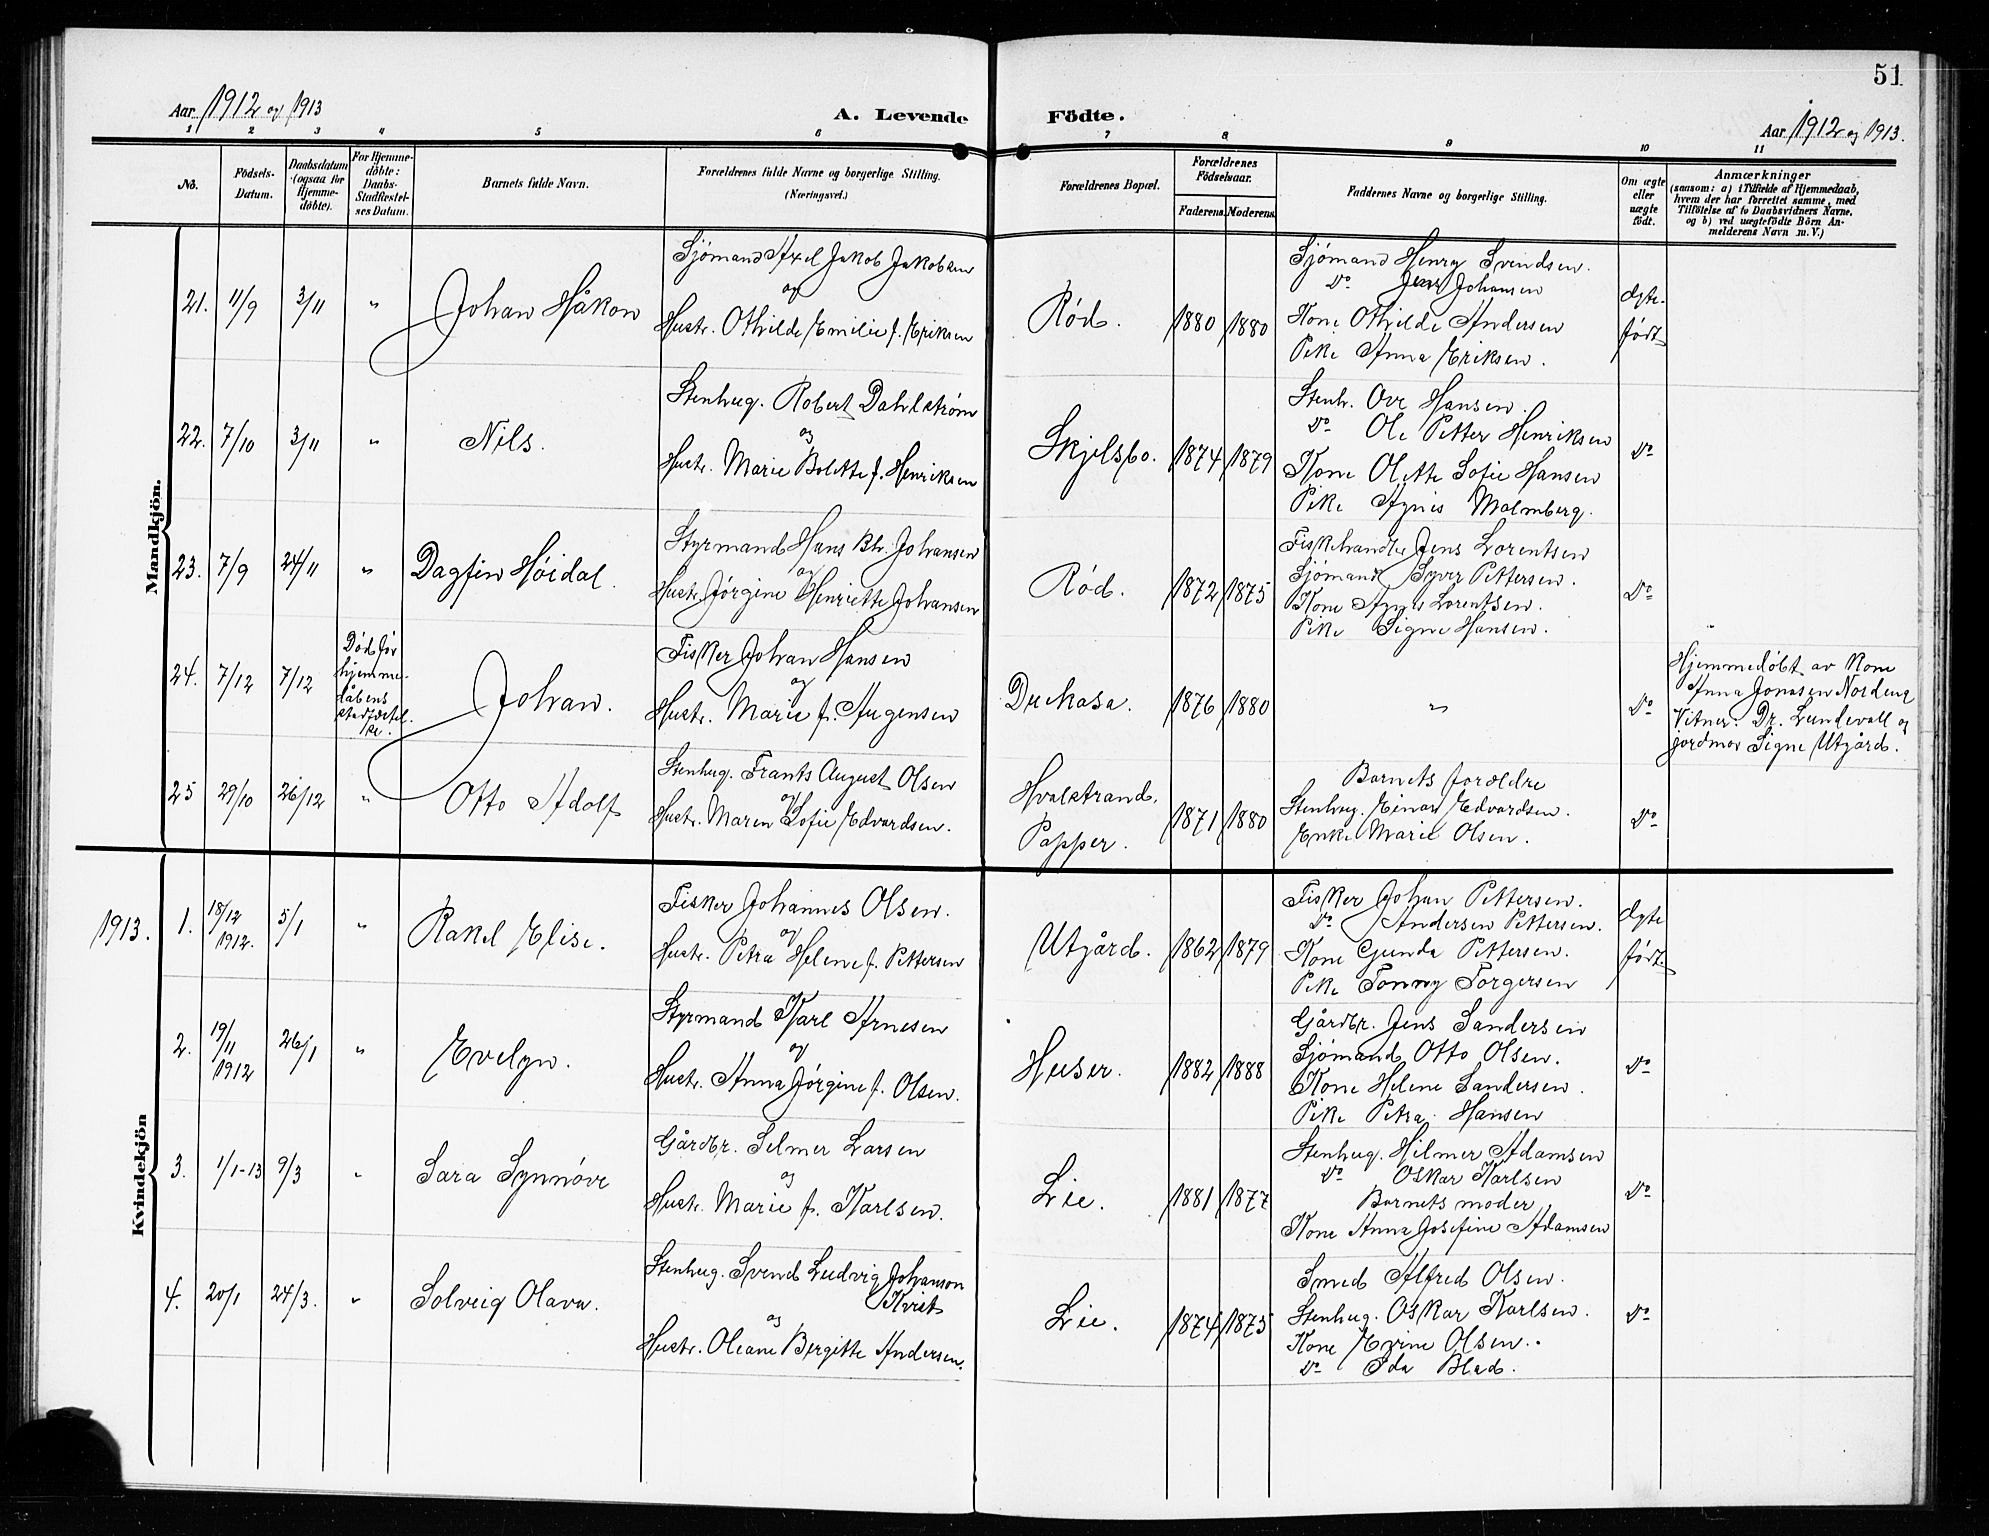 51
Aar 1912 og 1913
A. Levende Födte.
Aar 1912 og 1913.
1 2 3 4 5 6 7 8 9 10 11
No.
Födsels-Datum.
Daabsdatum (ogsaa for Hjemme-döbte).
For Hjemme-döbte: Daabs-Stadfæstel-ses Datum.
Barnets fulde Navn.
Forældrenes fulde Navne og borgerlige Stilling. (Næringsvei.)
Forældrenes Bopæl.
Forældrenes Födselsaar.
Faderens. Moderens.
Faddernes Navne og borgerlige Stilling.
Om ægte eller uægte födt.
Anmærkninger
(saasom: a) i Tilfælde af Hjemmedaab,
hvem der har forrettet samme, med
Tilföielse af to Daabsvidners Navne,
og b) ved uægtefödte Börn An-
melderens Navn m. V.)
Mandkjön.
21. 11/9 3/11 " Johan Håkon
Sjømand Axel Jakob Jakobsen
og
Hustr. Othilde Emilie f. Eriksen
Rød. 1880 1880
Sjømand Henry Svendsen.
Do Jens Johansen
Kone Othilde Andersen
Pike Anna Eriksen.
Ægte-
født
22. 7/10 3/11 " Nils.
Stenhug. Robert Dahlstrøm
og
Hustr. Marie Bolette f. Henriksen
Skjelsbo. 1874 1879
Stenh. Ove Hansen.
Do Ole Petter Henriksen
Kone Olette Sofie Hansen
Pike Agnes Malmberg.
Do
23. 7/9 24/11 " Dagfin Høidal.
Styrmand Hans Bh. Johansen
og
Hustr. Jørgine Henriette Johansen
Rød. 1872 1875
Fiskehandler Jens Lorentsen
Sjømand Syver Pettersen.
Kone Agnes Lorentsen.
Pike Signe Hansen.
Do
24. 7/12 7/12
Død før
hjemme-
dåbens
stadfæstel.
Johan.
Fisker Johan Hansen
og
Hustr. Marie f. Augensen
Duckasa. 1876 1880 " Do
Hjemmedøbt av Kone
Anna Jonasen Nordeng
Vitner: Dr. Lundevall og
jordmor Signe Utgård.
25 29/10 26/12 " Otto Adolf
Stenhug. Frants August Olsen
og
Hustr. Maren Sofie Edvardsen.
Hvalstrand.
Papper. 1871 1880
Barnets forældre
Stenhug. Einar Edvardsen.
Enke Marie Olsen.
Do
Kvindekjön
1913. 1. 18/12 1912. 5/1 " Rakel Elise.
Fisker Johannes Olsen.
og
Hustr. Petra Helene f. Pettersen
Utgård. 1862 1879
Fisker Johan Pettersen.
Do Andersen Pettersen.
Kone Gunda Pettersen.
Pike Tonny Torgersen
Ægte
født
2. 19/11 1912 26/1 " Evelyn.
Styrmand Karl Arnesen
og
Hustr. Anna Jørgine f. Olsen.
Huser. 1882 1888
Gårdbr. Jens Sandersen
Sjømand Otto Olsen.
Kone Helene Sandersen.
Pike Petra Hansen
Do
3. 1/1-13 9/3 " Sara Synnøve
Gårdbr. Selmer Larsen
og
Hustr. Marie f. Karlsen.
Lie. 1881 1877
Stenhug. Hilmer Adamsen
Do Oskar Karlsen
Barnets moder
Kone Anna Josefine Adamsen
Do
4. 20/1 24/3. " Solveig Olava.
Stenhug. Svend Ludvig Johanson
Kvist
og
Hustr. Oleane Bergitte Andersen.
Lie. 1874 1875
Smed Alfred Olsen.
Stenhug. Oskar Karlsen.
Kone Evine Olsen.
Do Ida Blad.
Do